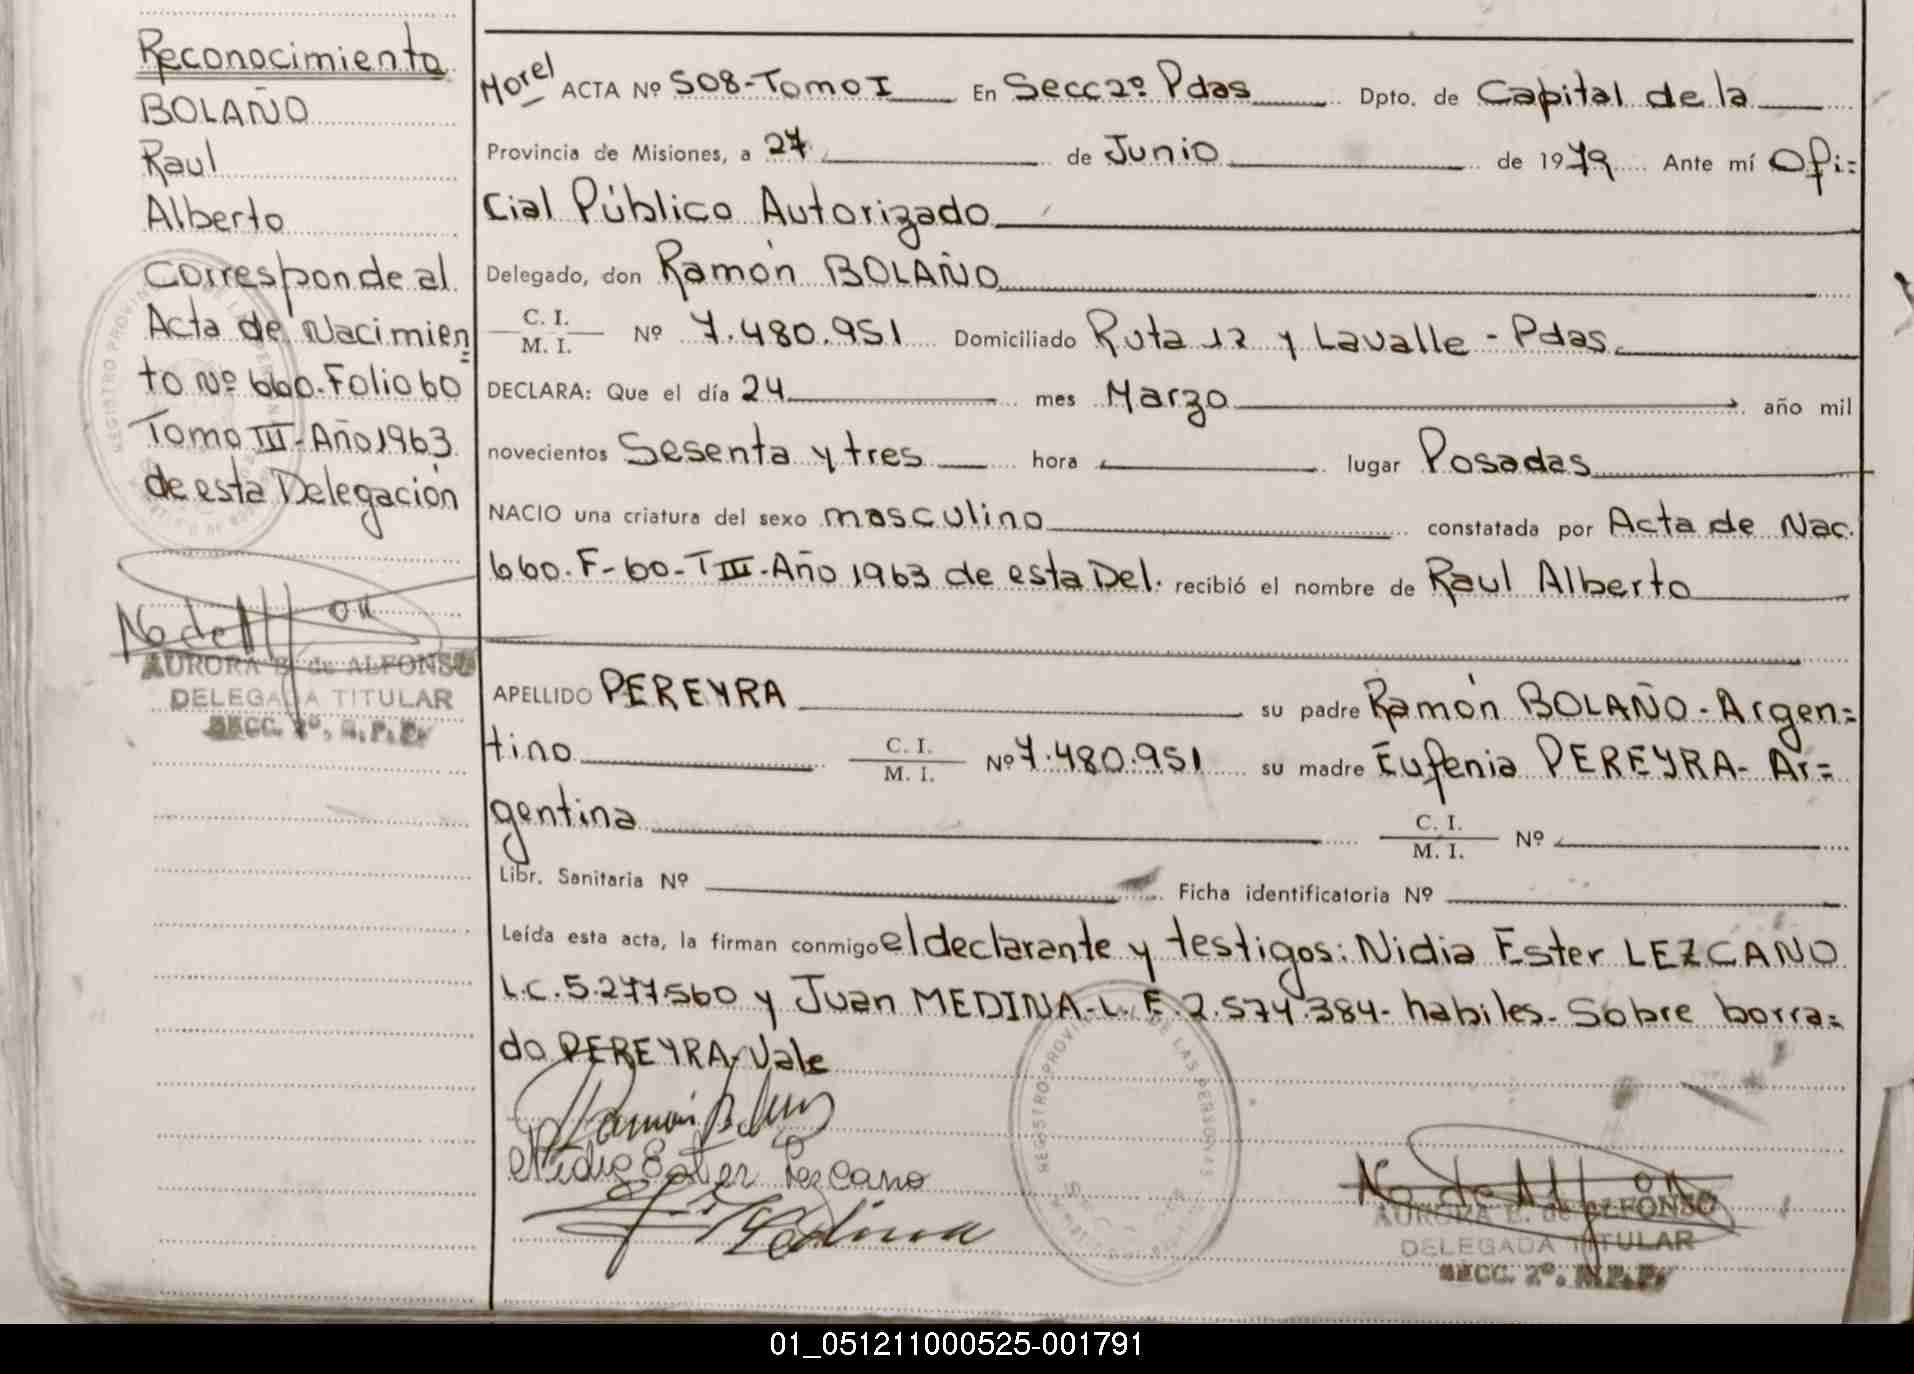 Reconocimiento
BOLAÑO
Raul
Alberto
Corresponde al
Acta de Nacimien=
to Nº 660-Folio 60
Tomo III-Año 1963
de esta Delegación
AURORA B. de ALFONSO
DELEGADA TITULAR
SECC. 2º. R.P.P.
Morel ACTA Nº 508-Tomo I En Secc 2º Pdas Dpto. de Capital de la
Provincia de Misiones, a 27 de Junio de 1979 Ante mí Ofi=
cial Público Autorizado
Delegado, don Ramón BOLAÑO
C. I.
M. I. Nº 7.480.951 Domiciliado Ruta 12 y Lavalle - Pdas.
DECLARA: Que el día 24 mes Marzo año mil
novecientos Sesenta y tres hora lugar Posadas
NACIO una criatura del sexo masculino constatada por Acta de Nac.
660-F-60-T III-Año 1963 de esta Del. recibió el nombre de Raul Alberto
APELLIDO PEREYRA su padre Ramón BOLAÑO-Argen=
tino C. I.
M. I. Nº 7.480.951 su madre Eufenia PEREYRA-Ar=
gentina C. I.
M. I. Nº
Libr. Sanitaria Nº Ficha identificatoria Nº
Leída esta acta, la firman conmigo el declarante y testigos: Nidia Ester LEZCANO
L.C. 5.277.560 y Juan MEDINA-L.E. 2.574.384- habiles-Sobre borra=
do PEREYRA-Vale
Nidia Ester Lezcano
Medina
REGISTRO PROVINCIAL DE LAS PERSONAS
AURORA B. de ALFONSO
DELEGADA TITULAR
SECC. 2º. R.P.P.
01_051211000525-001791